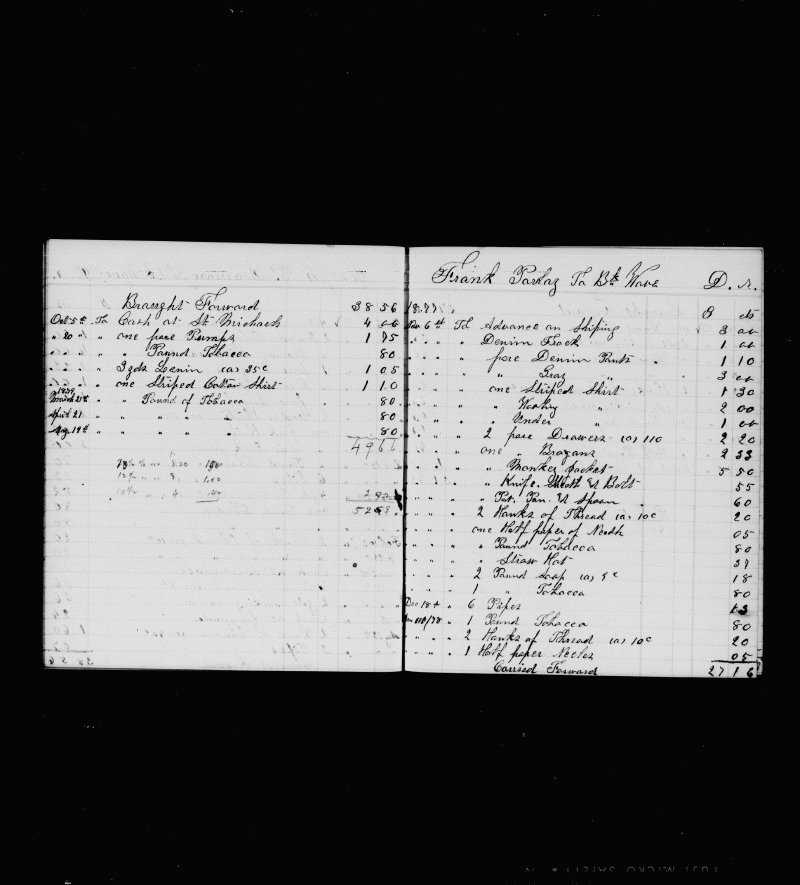 Braught Forward 38 56
Oct 5th To Cash at St Michaels 4 00
" 20 " " one pare Pumps 1 75
" " " " " Paund Tobacco 80
" " " " 3 yds Denin (a) 35c 1 05
" " " " one Striped Cotton Shirt 1 10
1879
March 21st " " Paund of Tobacco 80
April 21 " " " " 80
Aug 19th " " " " 80
49 66
2 92
52 58
Frank Partaz To Bk Wave D. r.
1877 $ cts
Nov 6th To Advance on Shiping 3 00
" " " " Denim Frock 1 00
" " " " pare Denim Pants 1 10
" " " " " Gray " 3 00
" " " " one Striped Shirt 1 30
" " " " " Woolsey " 2 00
" " " " " Under " 1 00
" " " " 2 pare Drawers (a) 110 2 20
" " " " one " Brogans 2 33
" " " " " Monkey Jacket 5 50
" " " " " Knife. Sheath & Belt 55
" " " " " Pot. Pan. & Spoon 60
" " " " 2 Hanks of Thread (a) 10c 20
" " " " one Half paper of Needls 05
" " " " " Paund Tobacco 80
" " " " " Straw Hat 37
" " " " 2 Paund Soap (a) 9c 18
" " " " 1 " Tobacco 80
Dec 18th " 6 Pipes 13
" 1 Paund Tobacco 80
" " " " 2 Hanks of Thread (a) 10c 20
" " " " 1 Half paper Neeles 05
Carried Forward 27 16